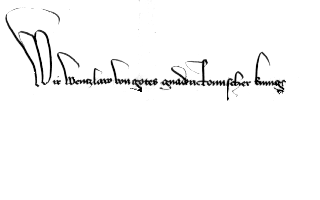 Wir Wenczlaw von gotes gnaden Romischer kunig